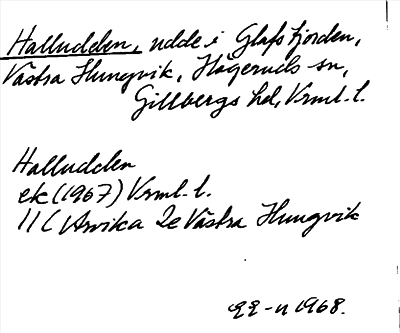 Halludden, udde i Glafsfjorden,
Västra Hungvik, Högeruds sn,
Gillbergs hd, Vrml. l.
Halludden
ek (1967) Vrml. l.
11 C Arvika 2e Västra Hungvik
1968.